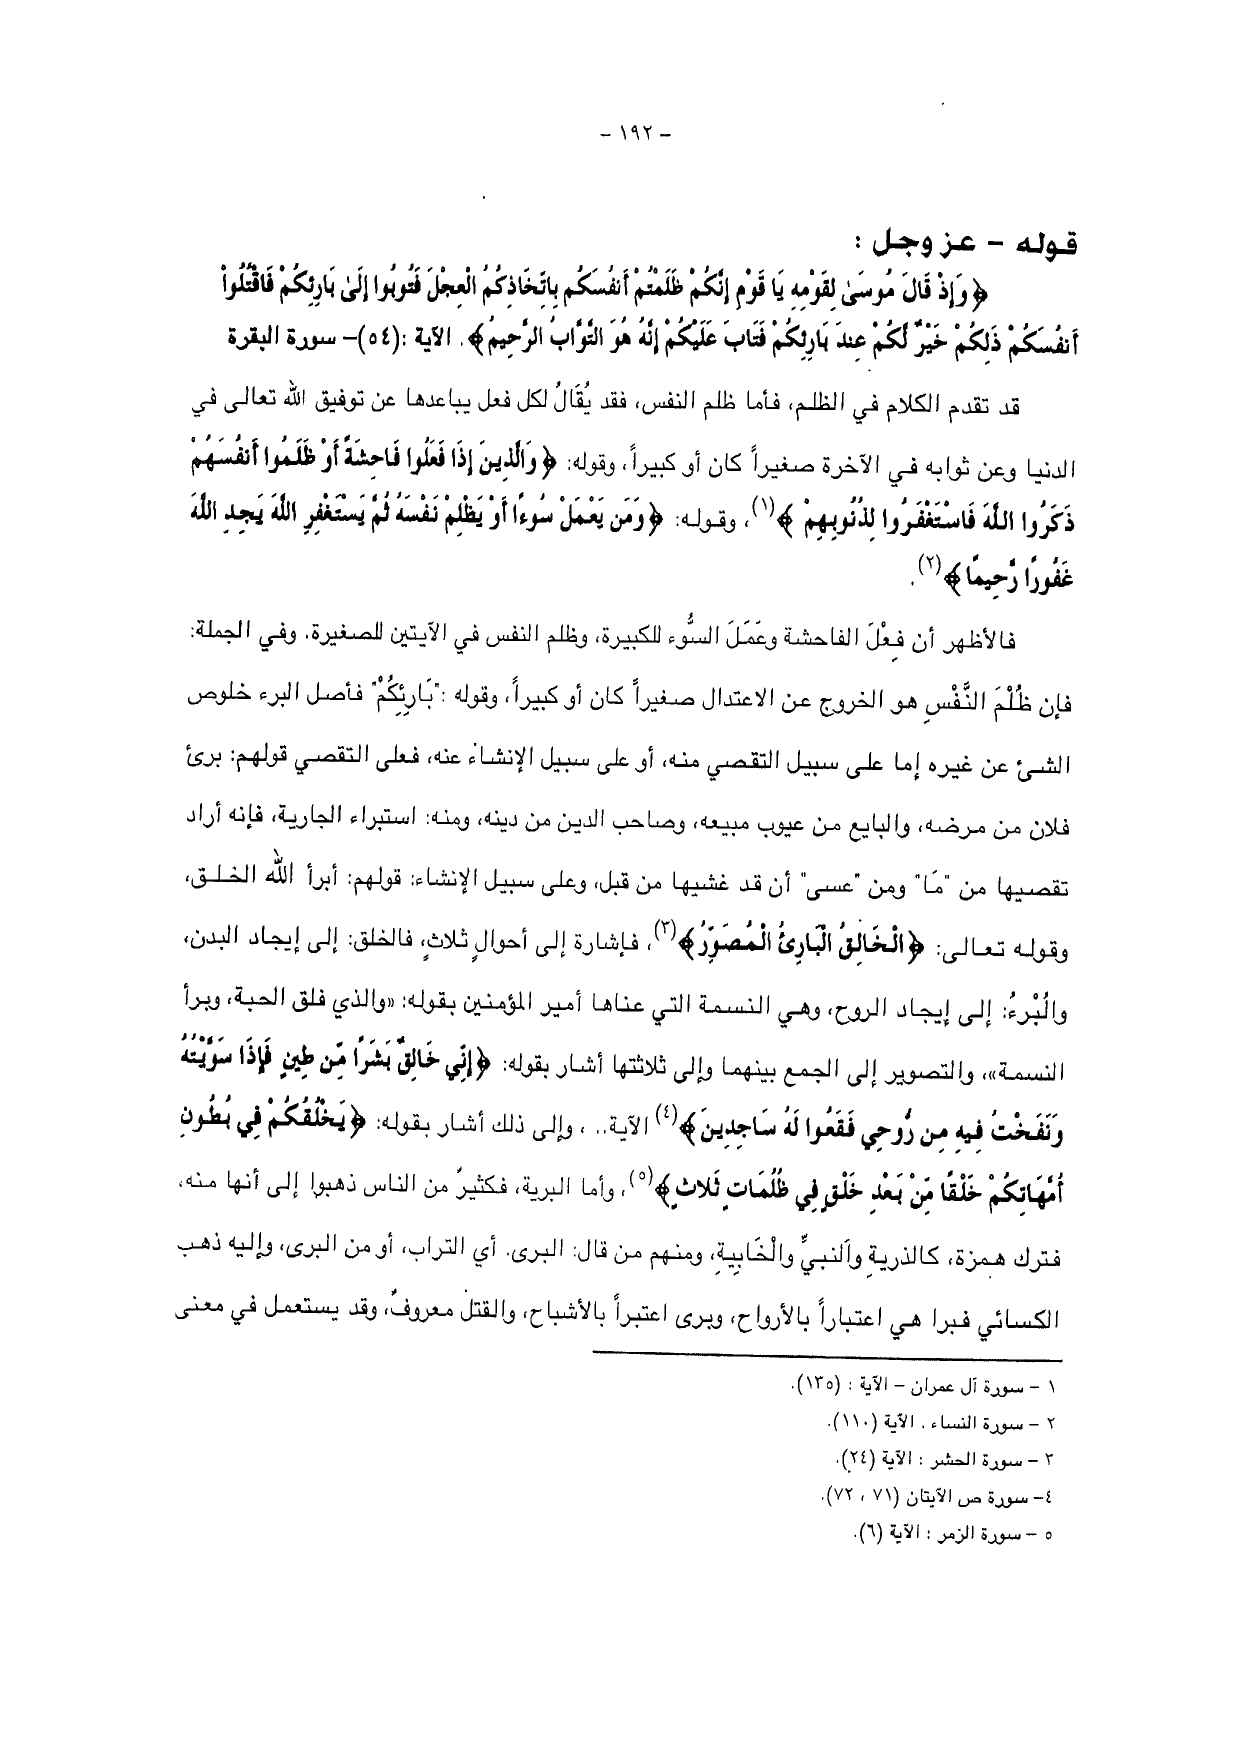 – ١٩٢ –
قوله – عز وجل :
﴿ وَإِذْ قَالَ مُوسَىٰ لِقَوْمِهِ يَا قَوْمِ إِنَّكُمْ ظَلَمْتُمْ أَنفُسَكُم بِاتِّخَاذِكُمُ الْعِجْلَ فَتُوبُوا إِلَىٰ بَارِئِكُمْ فَاقْتُلُواْ
أَنفُسَكُمْ ذَٰلِكُمْ خَيْرٌ لَّكُمْ عِندَ بَارِئِكُمْ فَتَابَ عَلَيْكُمْ إِنَّهُ هُوَ التَّوَّابُ الرَّحِيمُ﴾. الآية :(٥٤)– سورة البقرة
قد تقدم الكلام في الظلم، فأما ظلم النفس، فقد يُقَالُ لكل فعل يباعدها عن توفيق الله تعالى في
الدنيا وعن ثوابه في الآخرة صغيراً كان أو كبيراً، وقوله: ﴿ وَالَّذِينَ إِذَا فَعَلُوا فَاحِشَةً أَوْ ظَلَمُوا أَنفُسَهُمْ
ذَكَرُوا اللَّهَ فَاسْتَغْفَرُوا لِذُنُوبِهِمْ ﴾(١)، وقوله: ﴿ وَمَن يَعْمَلْ سُوءًا أَوْ يَظْلِمْ نَفْسَهُ ثُمَّ يَسْتَغْفِرِ اللَّهَ يَجِدِ اللَّهَ
غَفُورًا رَّحِيمًا ﴾(٢).
فالأظهر أن فِعْلَ الفاحشة وعَمَلَ السُّوء للكبيرة، وظلم النفس في الآيتين للصغيرة. وفي الجملة:
فإن ظُلْمَ النَّفْسِ هو الخروج عن الاعتدال صغيراً كان أو كبيراً، وقوله :"بَارِئِكُمْ" فأصل البرء خلوص
الشئ عن غيره إما على سبيل التقصي منه، أو على سبيل الإنشاء عنه، فعلى التقصي قولهم: برئ
فلان من مرضه، والبايع من عيوب مبيعه، وصاحب الدين من دينه، ومنه: استبراء الجارية، فإنه أراد
تقصيها من "مَا" ومن "عسى" أن قد غشيها من قبل، وعلى سبيل الإنشاء: قولهم: أبرأ الله الخلق،
وقوله تعالى: ﴿ الْخَالِقُ الْبَارِئُ الْمُصَوِّرُ ﴾(٣)، فإشارة إلى أحوالٍ ثلاثٍ، فالخلق: إلى إيجاد البدن،
والْبُرءُ: إلى إيجاد الروح، وهي النسمة التي عناها أمير المؤمنين بقوله: «والذي فلق الحبة، وبرأ
النسمة»، والتصوير إلى الجمع بينهما وإلى ثلاثتها أشار بقوله: ﴿ إِنِّي خَالِقٌ بَشَرًا مِّن طِينٍ فَإِذَا سَوَّيْتُهُ
وَنَفَخْتُ فِيهِ مِن رُّوحِي فَقَعُوا لَهُ سَاجِدِينَ ﴾(٤) الآية.. ، وإلى ذلك أشار بقوله: ﴿ يَخْلُقُكُمْ فِي بُطُونِ
أُمَّهَاتِكُمْ خَلْقًا مِّنْ بَعْدِ خَلْقٍ فِي ظُلُمَاتٍ ثَلاثٍ ﴾(٥)، وأما البرية، فكثيرٌ من الناس ذهبوا إلى أنها منه،
فترك همزة، كالذرية والنبيِّ والْخَابِيةِ، ومنهم من قال: البرى. أي التراب، أو من البرى، وإليه ذهب
الكسائي فبرا هي اعتباراً بالأرواح، وبرى اعتبراً بالأشباح، والقتل معروفٌ، وقد يستعمل في معنى
١ – سورة آل عمران – الآية : (١٣٥).
٢ – سورة النساء . الآية (١١٠).
٣ – سورة الحشر : الآية (٢٤).
٤– سورة ص الآيتان (٧١ ، ٧٢).
٥ – سورة الزمر : الآية (٦).